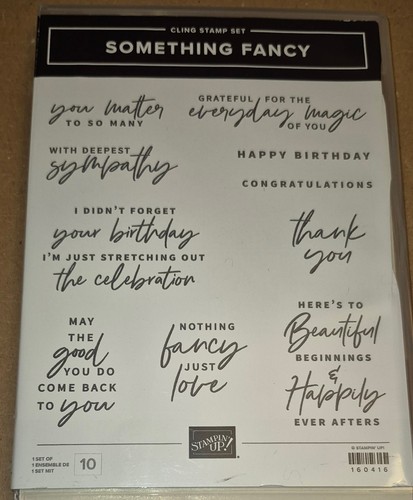 CLING STAMP SET
SOMETHING FANCY
you matter
TO SO MANY
GRATEFUL FOR THE
everyday magic
OF YOU
WITH DEEPEST
sympathy
HAPPY BIRTHDAY
CONGRATULATIONS
I DIDN'T FORGET
your birthday
I'M JUST STRETCHING OUT
the celebration
thank
you
MAY
THE
good
YOU DO
COME BACK
TO you
NOTHING
fancy
JUST
love
HERE'S TO
Beautiful
BEGINNINGS
&
Happily
EVER AFTERS
1 SET OF
1 ENSEMBLE DE
1 SET MIT
10
STAMPIN' UP!
© STAMPIN' UP!
160416